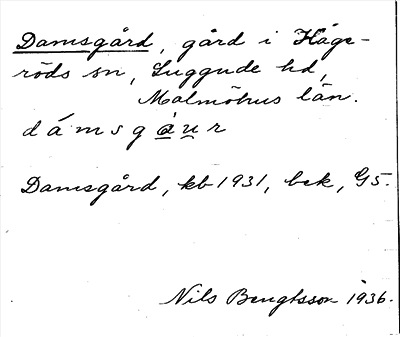 Damsgård, gård i Håge-
röds sn, Luggude hd,
Malmöhus län.
dámsgàu̯r
Damsgård, kb 1931, bek, G5.
Nils Bengtsson 1936.